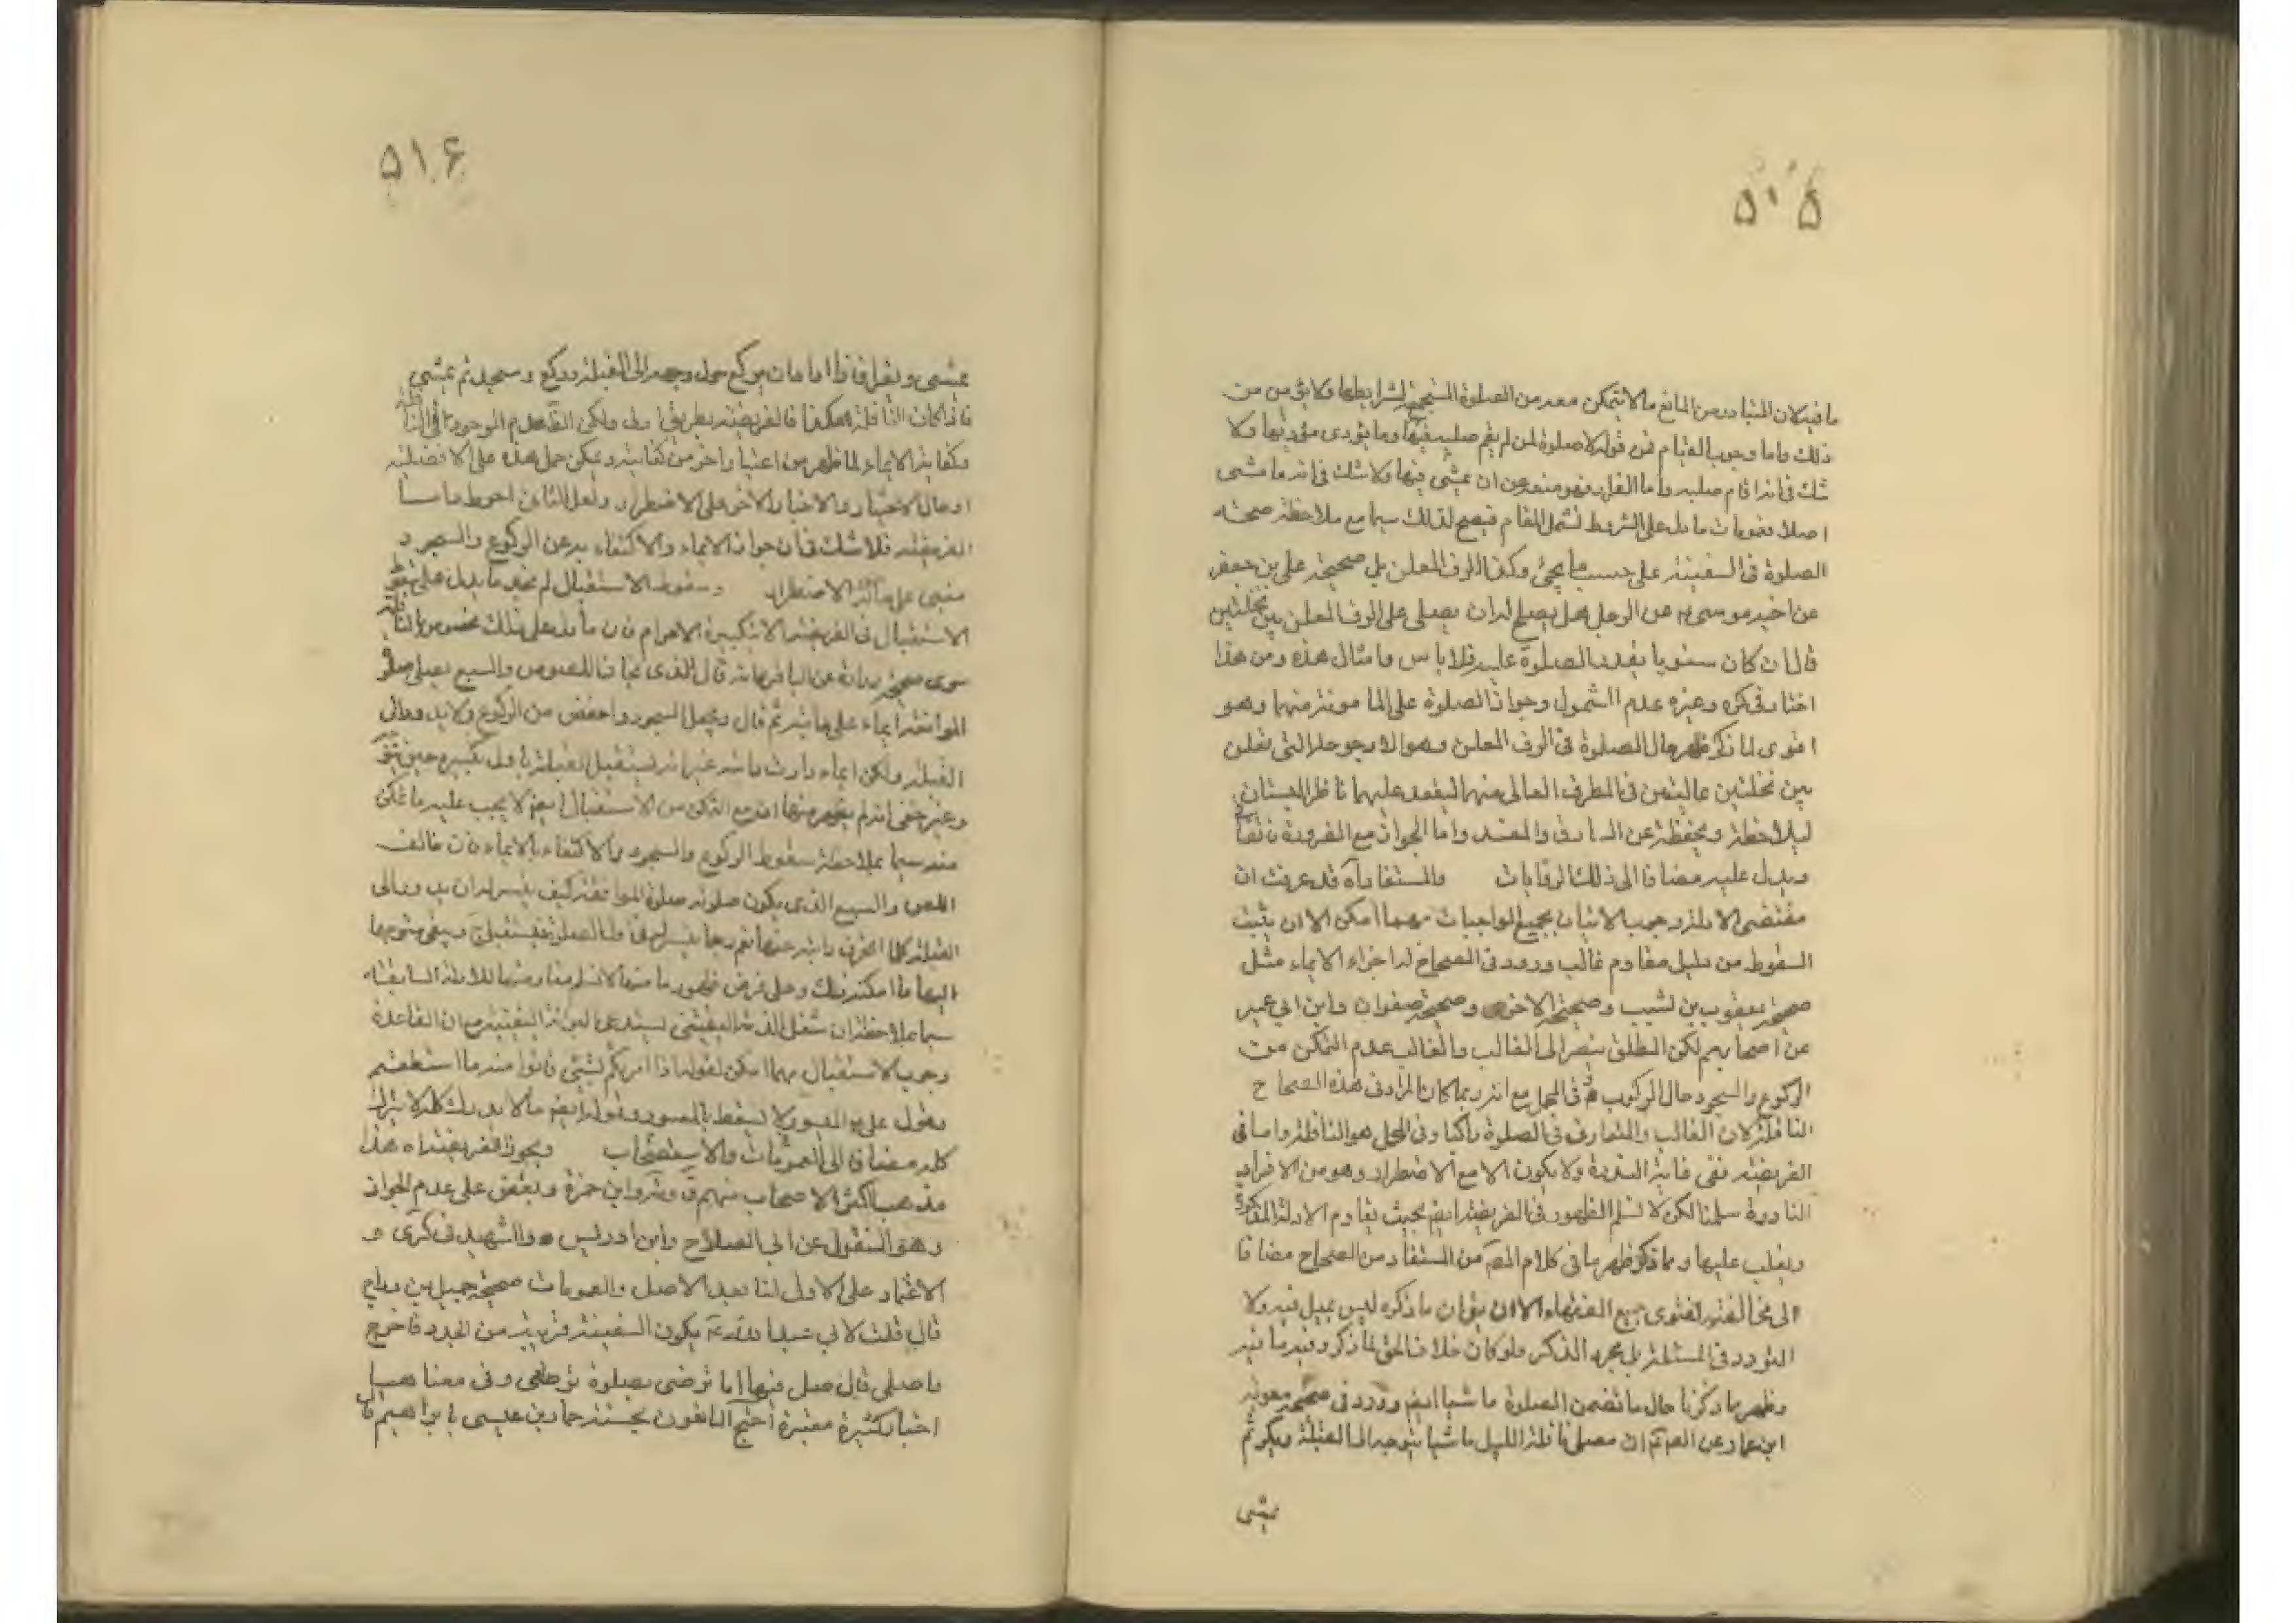 ۵۱۵
ما فيه لان المتبادر من المانع ما لا يتمكن معه من الصلوة المستجمع لشرايطها ولا يق من من
ذلك واما وجوب القيام فمن قوله لا صلوة لمن لم يقم صلبه فيها وما يؤدى مؤديها ولا
شك فى انه اقام صلبه واما القرار فهو منعه عن ان يمشى فيها ولا شك فى انه ما مشى
اصلا وعمومات ما دل على الشروط تشمل المقام فيصح لذلك سيما مع ملاحظة صحة
الصلوة فى السفينة على حسب ما يجئ وكذا الرف المعلق بل صحيحة على بن جعفر
عن اخيه موسى ع عن الرجل هل يصلح له ان يصلى على الرف المعلق بين نخلتين
قال ان كان مستويا يقدر الصلوة عليه فلا باس وامثال هذه ومن هذا
اختار فى كرى وغيره عدم الشمول وجواز الصلوة على الما مونة منها وهو
اقوى لما ذكر ظهر حال الصلوة فى الرف المعلق وهو الارجوحة التى تعلق
بين نخلتين عاليتين فى الطرف العالى منهما ليقعد عليهما ناظر البستان
ليلاحظه ويحفظه عن السارق والمفسد واما الجواز مع الضرورة
ويدل عليه مضافا الى ذلك الروايات والمستفاد آه قد عرفت ان
مقتضى الادلة وجوب الاتيان بجميع الواجبات مهما امكن الا ان يثبت
السقوط من دليل مقاوم غالب وورد فى الصحاح اجزاء الايماء مثل
صحيحة يعقوب بن شعيب وصحيحته الاخرى وصحيحة صفوان وابن ابي عمير
عن اصحابهم لكن المطلق ينصرف الى الغالب والغالب عدم التمكن من
الركوع والسجود حال الركوب فى المحمل مع انه ربما كان المراد فى هذه الصحاح
النافلة لان الغالب والمتعارف فى الصلوة راكبا وفى المحمل هو النافلة واما فى
الفريضة ففى غاية الندرة ولا يكون الا مع الاضطرار وهو من الافراد
النادرة سلمنا لكن لا نسلم الظهور فى الفريضة ايضا بحيث يقاوم الادلة المذكورة
ويغلب عليها ومما ذكر ظهر ما فى كلام المص من المستفاد من الصحاح مضافا
الى مخالفته لفتوى جميع الفقهاء الا ان يق ان ما ذكره ليس بميل فيه ولا
التردد فى المسئلة بل مجرد الذكر ولو كان خلاف الحق لما ذكر وفيه ما فيه
وظهر مما ذكرنا حال ما تضمن الصلوة ماشيا ايضا وورد فى صحيحة معوية
ابن عمار عن الص ع ان مصلى نافلة الليل ماشيا يتوجه الى القبلة ويكبر ثم
يمشى
۵۱۶
يمشى ويقرا فاذا اراد ان يركع حول وجهه الى القبلة وركع وسجد ثم يمشى
فاذا كان النافلة هكذا فالفريضة بطريق اولى ولكن الظ عدم الوجوب فى النافلة
وكفاية الايماء لما ظهر من اخبار اخر من كفايته ويمكن حمل هذه على الافضلية
او حال الاختيار والاخبار الاخر على الاضطرار ولعل الثانى احوط واما
الفريضة فلا شك فى ان جواز الايماء والاكتفاء به عن الركوع والسجود
مبنى على الاضطرار وسقوط الاستقبال لم نجد ما يدل على
الاستقبال فى الفريضة الا تكبيرة الاحرام فان ما دل على ذلك مخصوص بالنافلة
سوى صحيحة زرارة عن الباقر ع انه قال الذى يخاف اللصوص والسبع يصلى صلوة
المواقفة ايماء على دابته ثم قال ويجعل السجود اخفض من الركوع ولا يدور الى
القبلة ولكن ايماء دارت دابته غير انه يستقبل القبلة باول تكبيره حين
وغير خفى انه لم يظهر منها انه مع التمكن من الاستقبال ايضا لا يجب عليه ما تمكن
منه سيما بملاحظة سقوط الركوع والسجود والاكتفاء بالايماء فان خائف
اللص والسبع الذى يكون صلوته صلوة المواقفة كيف يتيسر له ان يدور الى
القبلة كلما انحرف دابته عنها
اليها ما امكنه ذلك وعلى فرض ظهور ما منها لا نسلم مقاومتها للادلة السابقة
سيما بملاحظة ان شغل الذمة اليقينى يستدعى البرائة اليقينية مع ان القاعدة
وجوب الاستقبال مهما امكن لقوله اذا امرتكم بشئ فاتوا منه ما استطعتم
وقول على ع الميسور لا يسقط بالمعسور وقوله ايضا ما لا يدرك كله لا يترك
كله مضافا الى العمومات والاستصحاب ويجوز الفريضة آه هذا
مذهب اكثر الاصحاب منهم وابن حمزة وبعض على عدم الجواز
وهو المنقول عن ابي الصلاح وابن ادريس والشهيد فى كرى و
الاعتماد على الاول لنا بعد الاصل والعمومات صحيحة جميل بن دراج
قال قلت لابي عبد الله ع يكون السفينة قريبة من الجدد فاخرج
واصلى قال صل فيها اما ترضى بصلوة نوح ع وفى معناها
اخبار كثيرة معتبرة احتج المانعون بحسنة حماد بن عيسى